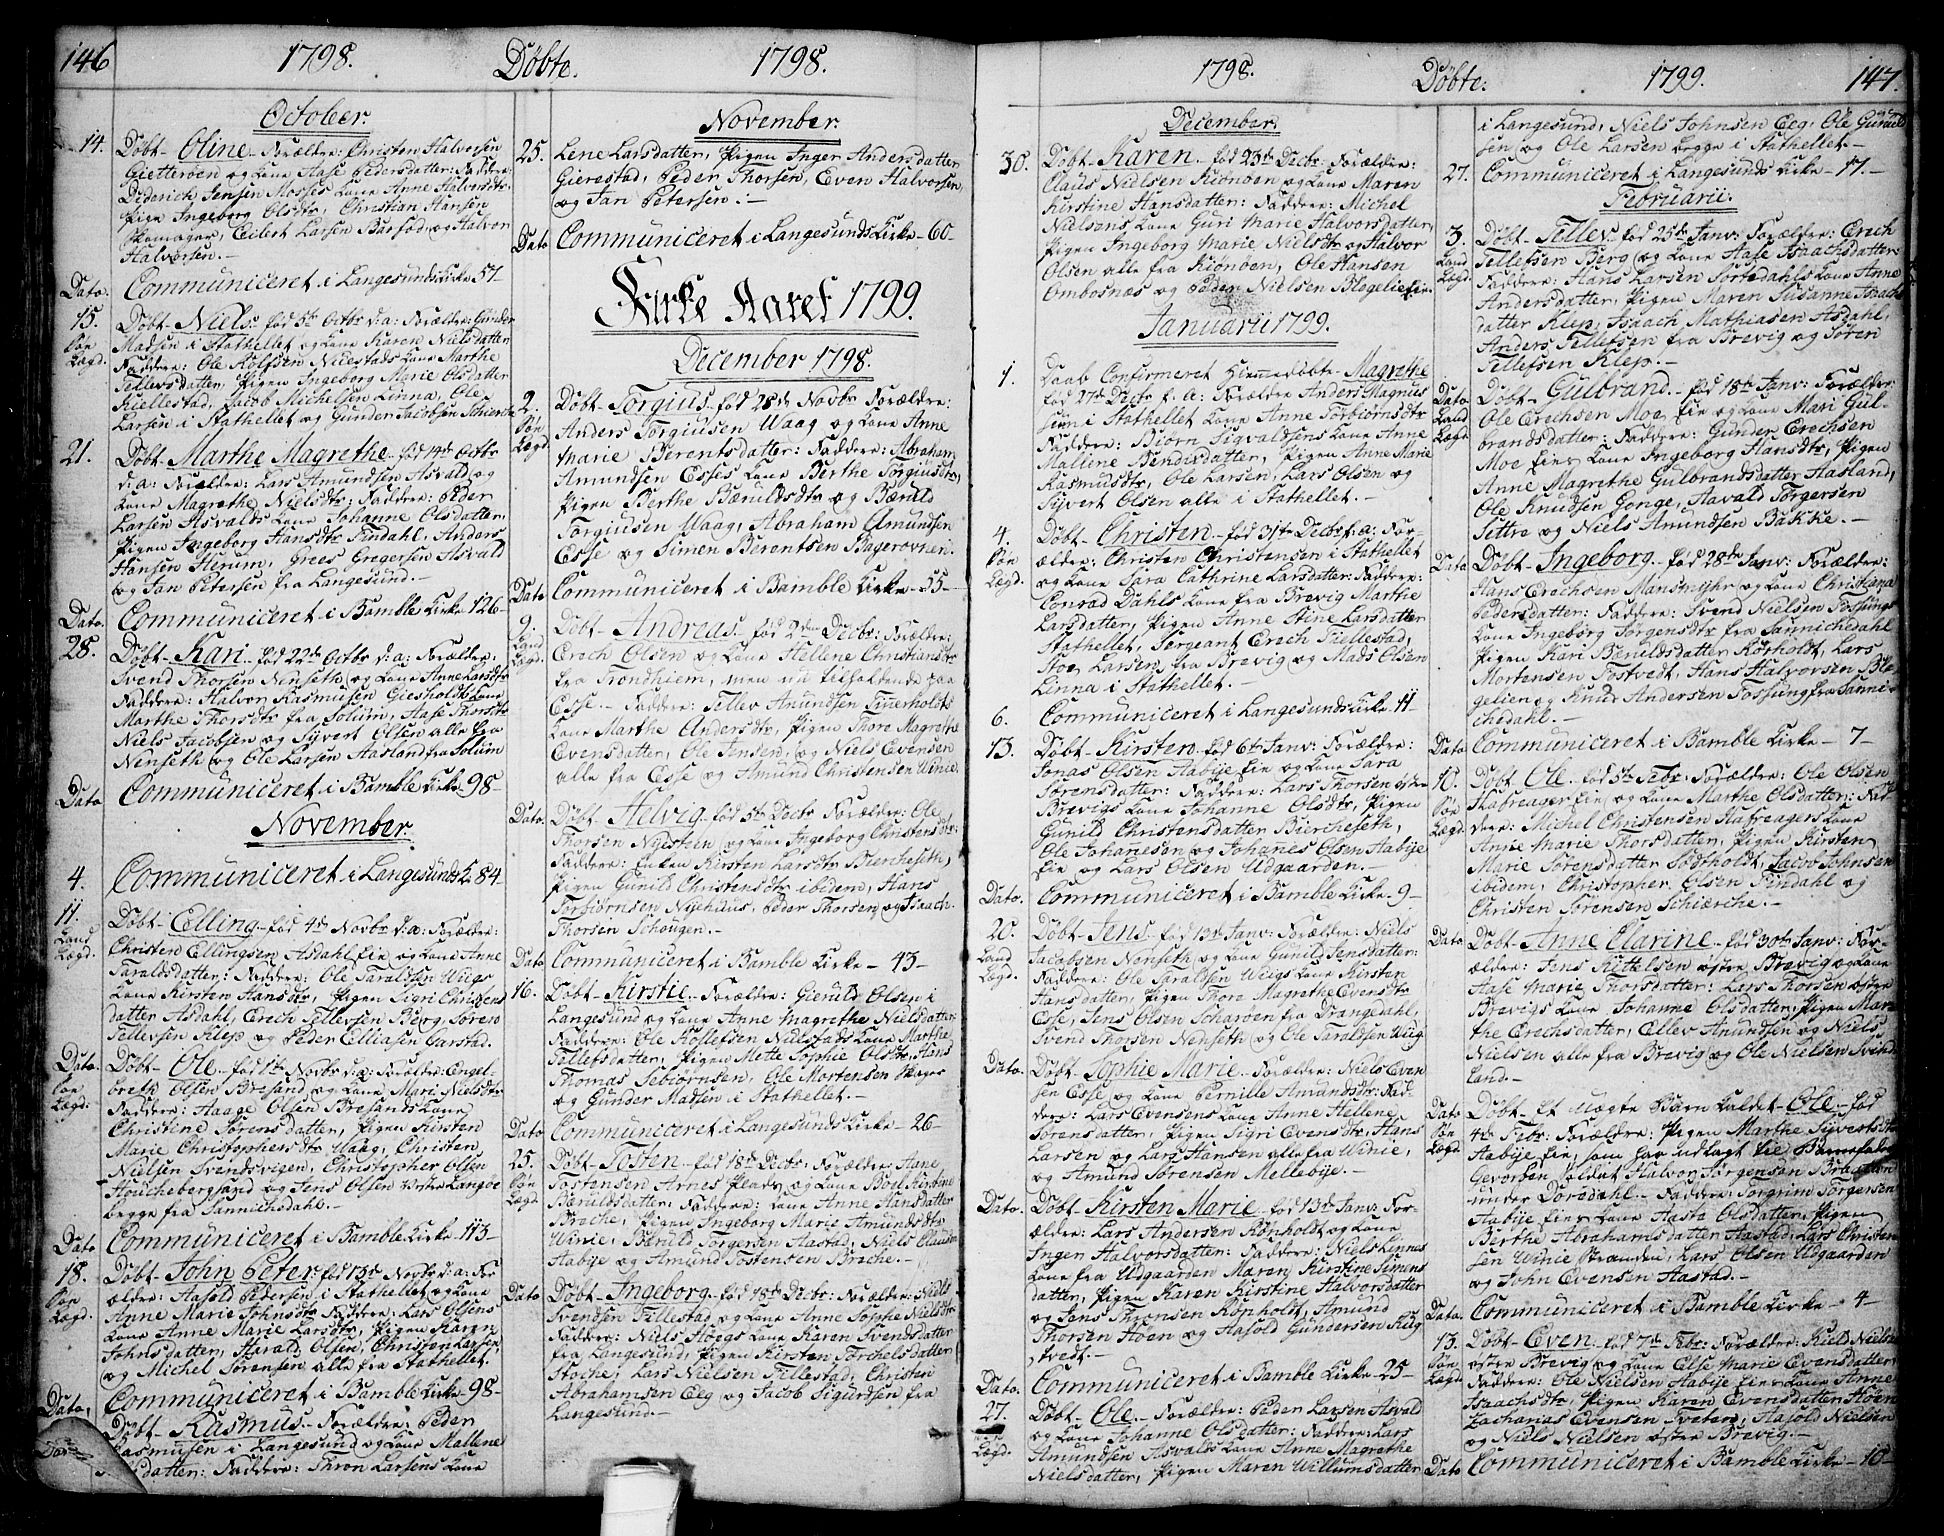 146
1798.
Döbte.
1798.
October.
14. Döbt Oline Forældre: Christen Halvorsen
Gietteröen og Kone Aase Pedersdatter: Faddere:
Diderich Jensen Mosses Kone Anne Halvorsdtr.
Pige Ingeborg Olsdtr, Christian Hansen
Skomager, Eilert Larsen Barfod, og Halvor
Halvorsen.
Dato. Communiceret i Langesunds Kirke 57
15. Döbt Niels, fød 5te Octbr d:a: Forældre: Gunder
Madsen i Stathellet og Kone Karen Nielsdatter
Faddere: Ole Rolfsen Nuestads Kone Marthe
Tellevsdatter, Pigen Ingeborg Marie Olsdatter
Kiellestad, Jacob Michelsen Linna, Ole
Larsen i Stathellet og Gunder Jacobsen Schierke
21. Döbt Marthe Magrethe fød 14de Octbr
d:a: Forældre: Lars Amundsen Asvald og
Kone Magrethe Nielsdtr: Faddere: Peder
Larsen Asvalds Kone Johanne Olsdatter,
Pigen Ingeborg Hansdtr Findahl, Anders
Hansen Herum, Grees Gregersen Asvald
og Jan Petersen fra Langesund.
Dato. Communiceret i Bamble Kirke 126
28. Döbt Kari fød 22de Octbr d:a: Forældre:
Svend Thorsen Nenseth og Kone Anne Larsdtr
Faddere: Halvor Rasmusen Giesholdts Kone
Marthe Thorsdtr fra Solum, Aase Thorsdtr
Niels Jacobsen og Syvert Olsen alle fra
Nenseth og Ole Larsen Aasland fra Solum
Dato Communiceret i Bamble Kirke 98
November.
4. Communiceret i Langesund 284
11. Döbt Elling fød 4de Novbr d:a: Forældre:
Land Lægd. Christen Ellingsen Asdahl Eie og Kone Anne
Taraldsdatter: Faddere: Ole Taraldsen Wiigs
Kone Kirsten Hansdtr, Pigen Sigri Christens
datter Asdahl, Erech Tellevsen Berg, Søren
Tellevsen Klep og Peder Elliasen Garstad.
Dato. Döbt Ole fød 1ste Novbr d:a: Forældre: Engel-
breth Olsen Bresand og Kone Mari Nielsdtr
Faddere: Aage Olsen Bresands Kone
Christine Sörensdatter, Pigen Kirsten
Marie Christophersdtr Waag, Christen
Nielsen Svendsvigen, Christopher Olsen
Houchebergsand og Jens Olsen Vestre Langöe
begge fra Sannichsdahl.
Dato Communiceret i Bamble Kirke 113
18. Döbt John Peter fød 13de Novbr d:a: For
ældre: Aasold Pedersen i Stathellet og Kone
Anne Marie Johnsdtr Faddere: Lars Olsens
Kone Anne Marie Larsdtr, Pigen Karen
Johnsdatter, Harald Olsen, Christen Larsen,
og Michel Sørensen alle fra Stathellet.
Dato, Communiceret i Bamble Kirke 98
Döbt Rasmus Forældre: Peder
Rasmusen i Langesund og Kone Mallene
datter: Faddere: Thron Larsens Kone
November.
25. Lene Larsdatter, Pigen Inger Andersdatter
Gierestad, Peder Thorsen, Even Halvorsen,
og Jan Petersen.
Dato Communiceret i Langesunds Kirke 60
Kirke Aaret 1799.
December 1798.
2. Döbt Torgius fød 28de Novbr Forældre:
Anders Torgiusen Waag og Kone Anne
Marie Berentsdatter: Faddere: Abraham
Amundsen Esses Kone Berthe Torgiusdtr,
Pigen Berthe Bæruldsdtr og Bæruld
Torgiusen Waag, Abraham Amundsen
Esse og Simen Berentsen Bagerovnen.
Dato Communiceret i Bamble Kirke 55
9. Döbt Andreas fød 2den Decbr: Forældre:
Land Lægd. Erech Olsen og Kone Hellene Christiansdtr
fra Trondhiem, men nu tilholdende paa
Esse. Faddere: Tellev Anundsen Tinerholts
Kone Marthe Andersdtr, Pigen Thore Magrethe
Evensdatter, Ole Jensen, og Niels Evensen
alle fra Esse og Amund Christensen Winie.
Dato. Döbt Helvig fød 5te Decbr Forældre: Ole
Thorsen Nyesten og Kone Ingeborg Christensdtr:
Faddere: Enken Kirsten Larsdtr Biercheseth,
Pigen Gunild Christensdtr ibidem, Hans
Torbiörnsen Nyehuus, Peder Thorsen og Isaach
Thorsen Schougen.
Dato Communiceret i Bamble Kirke 43
16. Döbt Kirstie Forældre: Gieruld Olsen i
Langesund og Kone Anne Magrethe Nielsdatter
Faddere: Ole Rollefsen Nustads Kone Marthe
Tellefsdatter, Pigen Mette Sophie Olsdtr, Hans
Thomas Sebiørnsen, Ole Mortensen Skager
og Gunder Madsen i Stathellet.
Dato Communiceret i Langesunds Kirke 26
25. Döbt Tosten fød 18de Decbr: Forældre: Aane
Tostensen Arnes Plads og Kone Boel Kirstine
Bæruldsdatter: Faddere: Kone Anne Hansdatter
Broche, Pigen Ingeborg Marie Amundsdtr
Winie, Bæruld Torgersen Aastad, Niels Clausen
Aabye og Amund Tostensen Broche.
Dato Döbt Ingeborg fød 18de Decbr: Forældre: Niels
Svendsen Tillestad og Kone Anne Sophe Nielsdtr
Faddere: Niels Höegs Kone Karen Svendsdatter
fra Langesund, Pigen Kirsten Torchelsdatter
Stoche, Lars Nielsen Tillestad, Christen
Abrahamsen Eeg og Jacob Sigurdsen fra
Langesund.
1798.
Döbte.
1799.
147.
December.
30. Döbt Karen fød 23de Decbr Forældre:
Claus Nielsen Kiönöen og Kone Maren
Kirstine Hansdatter: Faddere: Michel
Nielsens Kone Guri Marie Halvorsdatter,
Pigen Ingeborg Marie Nielsdtr og Halvor
Olsen alle fra Kiönöen, Ole Hansen
Ombosnæs og Peder Nielsen Blegelie Eie.
Januarii 1799.
1. Daab Confirmeret Hiemmedöbte Magrethe
fød 27de Decbr f.a: Forældre Anders Magnus
sen i Stathellet Kone Anne Torbiörnsdtr
Faddere: Biörn Sigvaldsens Kone Anne
Malene Bendixdatter, Pigen Anne Marie
Rasmusdtr, Ole Larsen, Lars Olsen og
Syvert Olsen alle i Stathellet.
4. Döbt Christen fød 31te Decbr f:a: For-
ældre: Christen Christensen i Stathellet
og Kone Sara Cathrine Larsdatter: Faddere:
Conrad Dahls Kone fra Brevig Marthe
Larsdatter, Pigen Anne Stine Larsdatter
Stathellet, Sergeant Erech Tillestad,
Stoe Larsen, fra Brevig og Mads Olsen
Linna i Stathellet.
6. Communiceret i Langesunds Kirke 11
13. Döbt Kirsten fød 6te Janv: Forældre:
Jonas Olsen Aabye Eie og Kone Sara
Sørensdatter: Faddere: Lars Thorsen östre
Brevigs Kone Johanne Olsdtr, Pigen
Gunild Christensdatter Biercheseth,
Ole Johanesen og Johanes Olsen Aabye
Eie og Lars Olsen Udgaarden.
Dato. Communiceret i Bamble Kirke 9
20. Döbt Jens fød 13de Janv: Forældre: Niels
Land Lægd. Jacobsen Nenseth og Kone Gunild Jensdatter:
Faddere: Ole Taraldsen Wiigs Kone Kirsten
Hansdatter, Pigen Thore Magrethe Evensdtr
Esse, Jens Olsen Scharøen fra Drangedahl,
Svend Thorsen Nenseth og Ole Taraldsen Wiig
Dato. Döbt Sophie Marie Forældre: Niels Even
sen Esse og Kone Pernille Amundsdtr: Fad-
dere: Lars Evensens Kone Anne Hellene
Sørensdatter, Pigen Sigri Evensdtr, Hans
Larsen og Lars Hansen alle fra Winie,
og Amund Sørensen Mellebye.
Dato. Döbt Kirsten Marie fød 13de Janv: For-
ældre: Lars Andersen Rönholdt og Kone
Inger Halvorsdatter: Faddere: Niels Linnes
Kone fra Udgaarden Maren Kirstine Simens
datter, Pigen Karen Kirstine Halvorsdatter
og Jens Thronsen Rönholdt, Amund
Thorsen Hoen og Aasold Gundersen Rug
tvedt.
Dato. Communiceret i Bamble Kirke 25
27. Döbt Ole Forældre: Peder Larsen Asvald
og Kone Johanne Olsdatter: Faddere: Lars
Amundsen Asvalds Kone Anne Magrethe
Nielsdatter, Pigen Maren Willumsdatter
i Langesund, Niels Johnsen Eeg, Ole Gunuld
sen og Ole Larsen begge i Stathellet.
27. Communiceret i Langesunds Kirke 17.
Februarii.
3. Döbt Tellev fød 25de Janv: Forældre: Erech
Land Lægd Tellefsen Berg og Kone Aase Isaachsdatter
Faddere: Hans Larsen Sortedahls Kone Anne
Andersdatter, Pigen Maren Susanne Isaachs
datter Klep, Isaach Mathiasen Asdahl,
Anders Tellefsen fra Brevig og Sören
Tellefsen Klep.
Dato Land Lægd. Döbt Gulbrand fød 18de Janv: Forældre:
Ole Erechsen Moe Eie og Kone Mari Gul-
brandsdatter: Faddere: Gunder Erechsen
Moe Eies Kone Ingeborg Hansdtr, Pigen
Anne Magrethe Gulbrandsdatter Aasland,
Ole Knudsen Gonge, Aavald Torgersen
Settre og Niels Amundsen Bakke.
Dato Döbt Ingeborg fød 28de Janv: Forældre:
Hans Erechsen Mansmyhr og Kone Christiana
Pedersdatter: Faddere: Svend Nielsen Fossungs
Kone Ingeborg Törgensdtr fra Sannichedahl
Pigen Kari Benuldsdatter Rørholdt, Lars
Mortensen Tostvedt, Hans Halvorsen Ble-
gelien og Knud Andersen Fossung fra Sanni-
chedahl.
Dato Communiceret i Bamble Kirke 7
10. Döbt Ole fød 5te Febr: Forældre: Ole Olsen
Stabreager Eie og Kone Marthe Olsdatter: Fad-
dere: Michel Christensen Hafreagers Kone
Anne Marie Thorsdatter, Pigen Kirsten
Marie Sørensdatter Södholdt, Jacob Johnsen
ibidem, Christopher Olsen Findahl og
Christen Sørensen Schierche.
Dato Döbt Anne Elarine fød 30te Janv: For-
ældre: Jens Kittelsen östre Brevig og Kone
Aase Marie Thorsdatter: Lars Thorsen östre
Brevigs Kone Johanne Olsdatter, Pigen Mar-
the Erechsdatter, Ellev Andersen og Niels
Nielsen alle fra Brevig og Ole Nielsen Svind
land.
Dato Döbt Et Uægte Barn kaldet Ole fød
4de Febr: Forældre: Pigen Marthe Syvertsdtr
Aabye Eie, som har udlagt til Barnefader
Gevorben Soldat Halvor Jörgensen Braaten
under Doredahl. Faddere: Torgrim Torgersen
Aabye Eies Kone Aasta Olsdatter, Pigen
Berthe Abrahamsdatter Aastad, Lars Christen
sen Winie Stranden, Lars Olsen Udgaarden
og John Evensen Aastad.
Dato. Communiceret i Bamble Kirke 4
13. Döbt Even fød 7de Febr: Forældre: Kield Nielsen
östre Brevig og Kone Else Marie Evensdatter,
Faddere: Ole Nielsen Aabye Eies Kone Anne
Isaachsdtr, Pigen Karen Evensdatter Hoen
Zacharias Evensen Tveten, Aasold Nielsen
og Niels Nielsen östre Brevig.
Dato Communiceret i Bamble Kirke 10